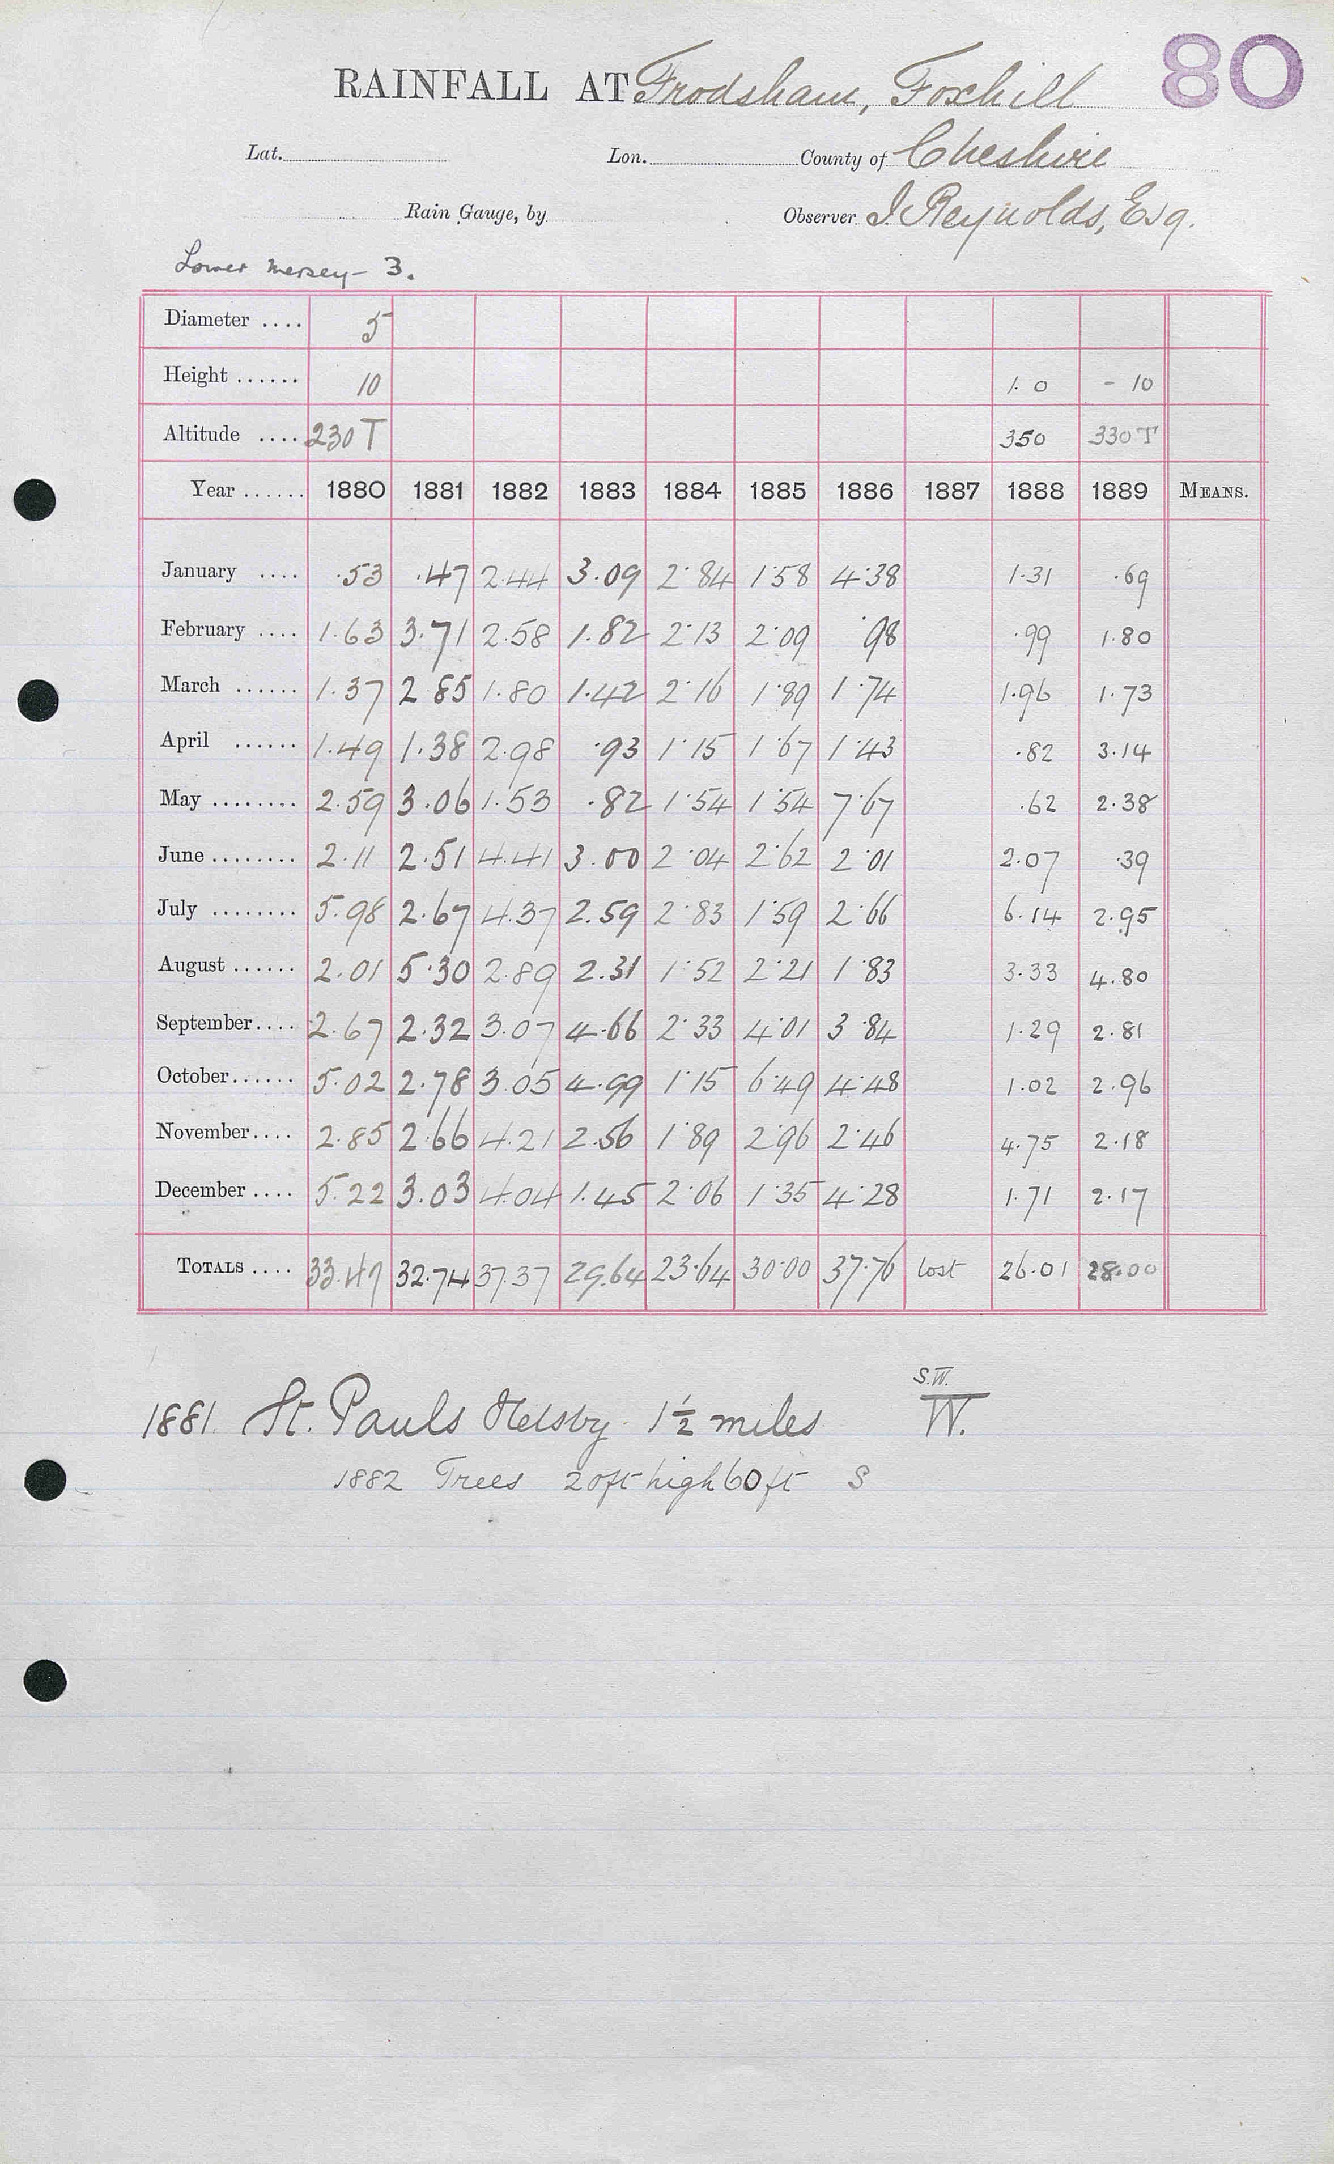 80
RAINFALL AT Frodsham, Foxhill
Lat. Lon. County of Cheshire
Rain Gauge, by Observer I Reynolds, Esq.
Lower Mersey - 3.
Diameter .... 5
Height ...... 10 1. 0 - 10
Altitude .... 230 T 350 330 T
Year ...... 1880 1881 1882 1883 1884 1885 1886 1887 1888 1889 MEANS.
January .... .53 .47 2.44 3.09 2.84 1.58 4.38 1.31 .69
February .... 1.63 3.71 2.58 1.82 2.13 2.09 .98 .99 1.80
March ...... 1.37 2 85 1.80 1.42 2.16 1.89 1.74 1.96 1.73
April ...... 1.49 1.38 2.98 .93 1.15 1.67 1.43 .82 3.14
May ........ 2.59 3.06 1.53 .82 1.54 1.54 7.67 .62 2.38
June ........ 2.11 2.51 4.41 3.00 2.04 2.62 2.01 2.07 .39
July ........ 5.98 2.67 4.37 2.59 2.83 1.59 2.66 6.14 2.95
August ...... 2.01 5.30 2.89 2.31 1.52 2.21 1.83 3.33 4.80
September.... 2.67 2.32 3.07 4.66 2.33 4.01 3.84 1.29 2.81
October...... 5.02 2.78 3.05 4.99 1.15 6.49 4.48 1.02 2.96
November.... 2.85 2.66 4.21 2.56 1.89 2.96 2.46 4.75 2.18
December .... 5.22 3.03 4.04 1.45 2.06 1.35 4.28 1.71 2.17
TOTALS .... 33.47 32.74 37.37 29.64 23.64 30.00 37.76 lost 26.01 28.00
S.W.
1881. St. Pauls Helsby 1½ miles W.
1882 Trees 20ft high 60ft S